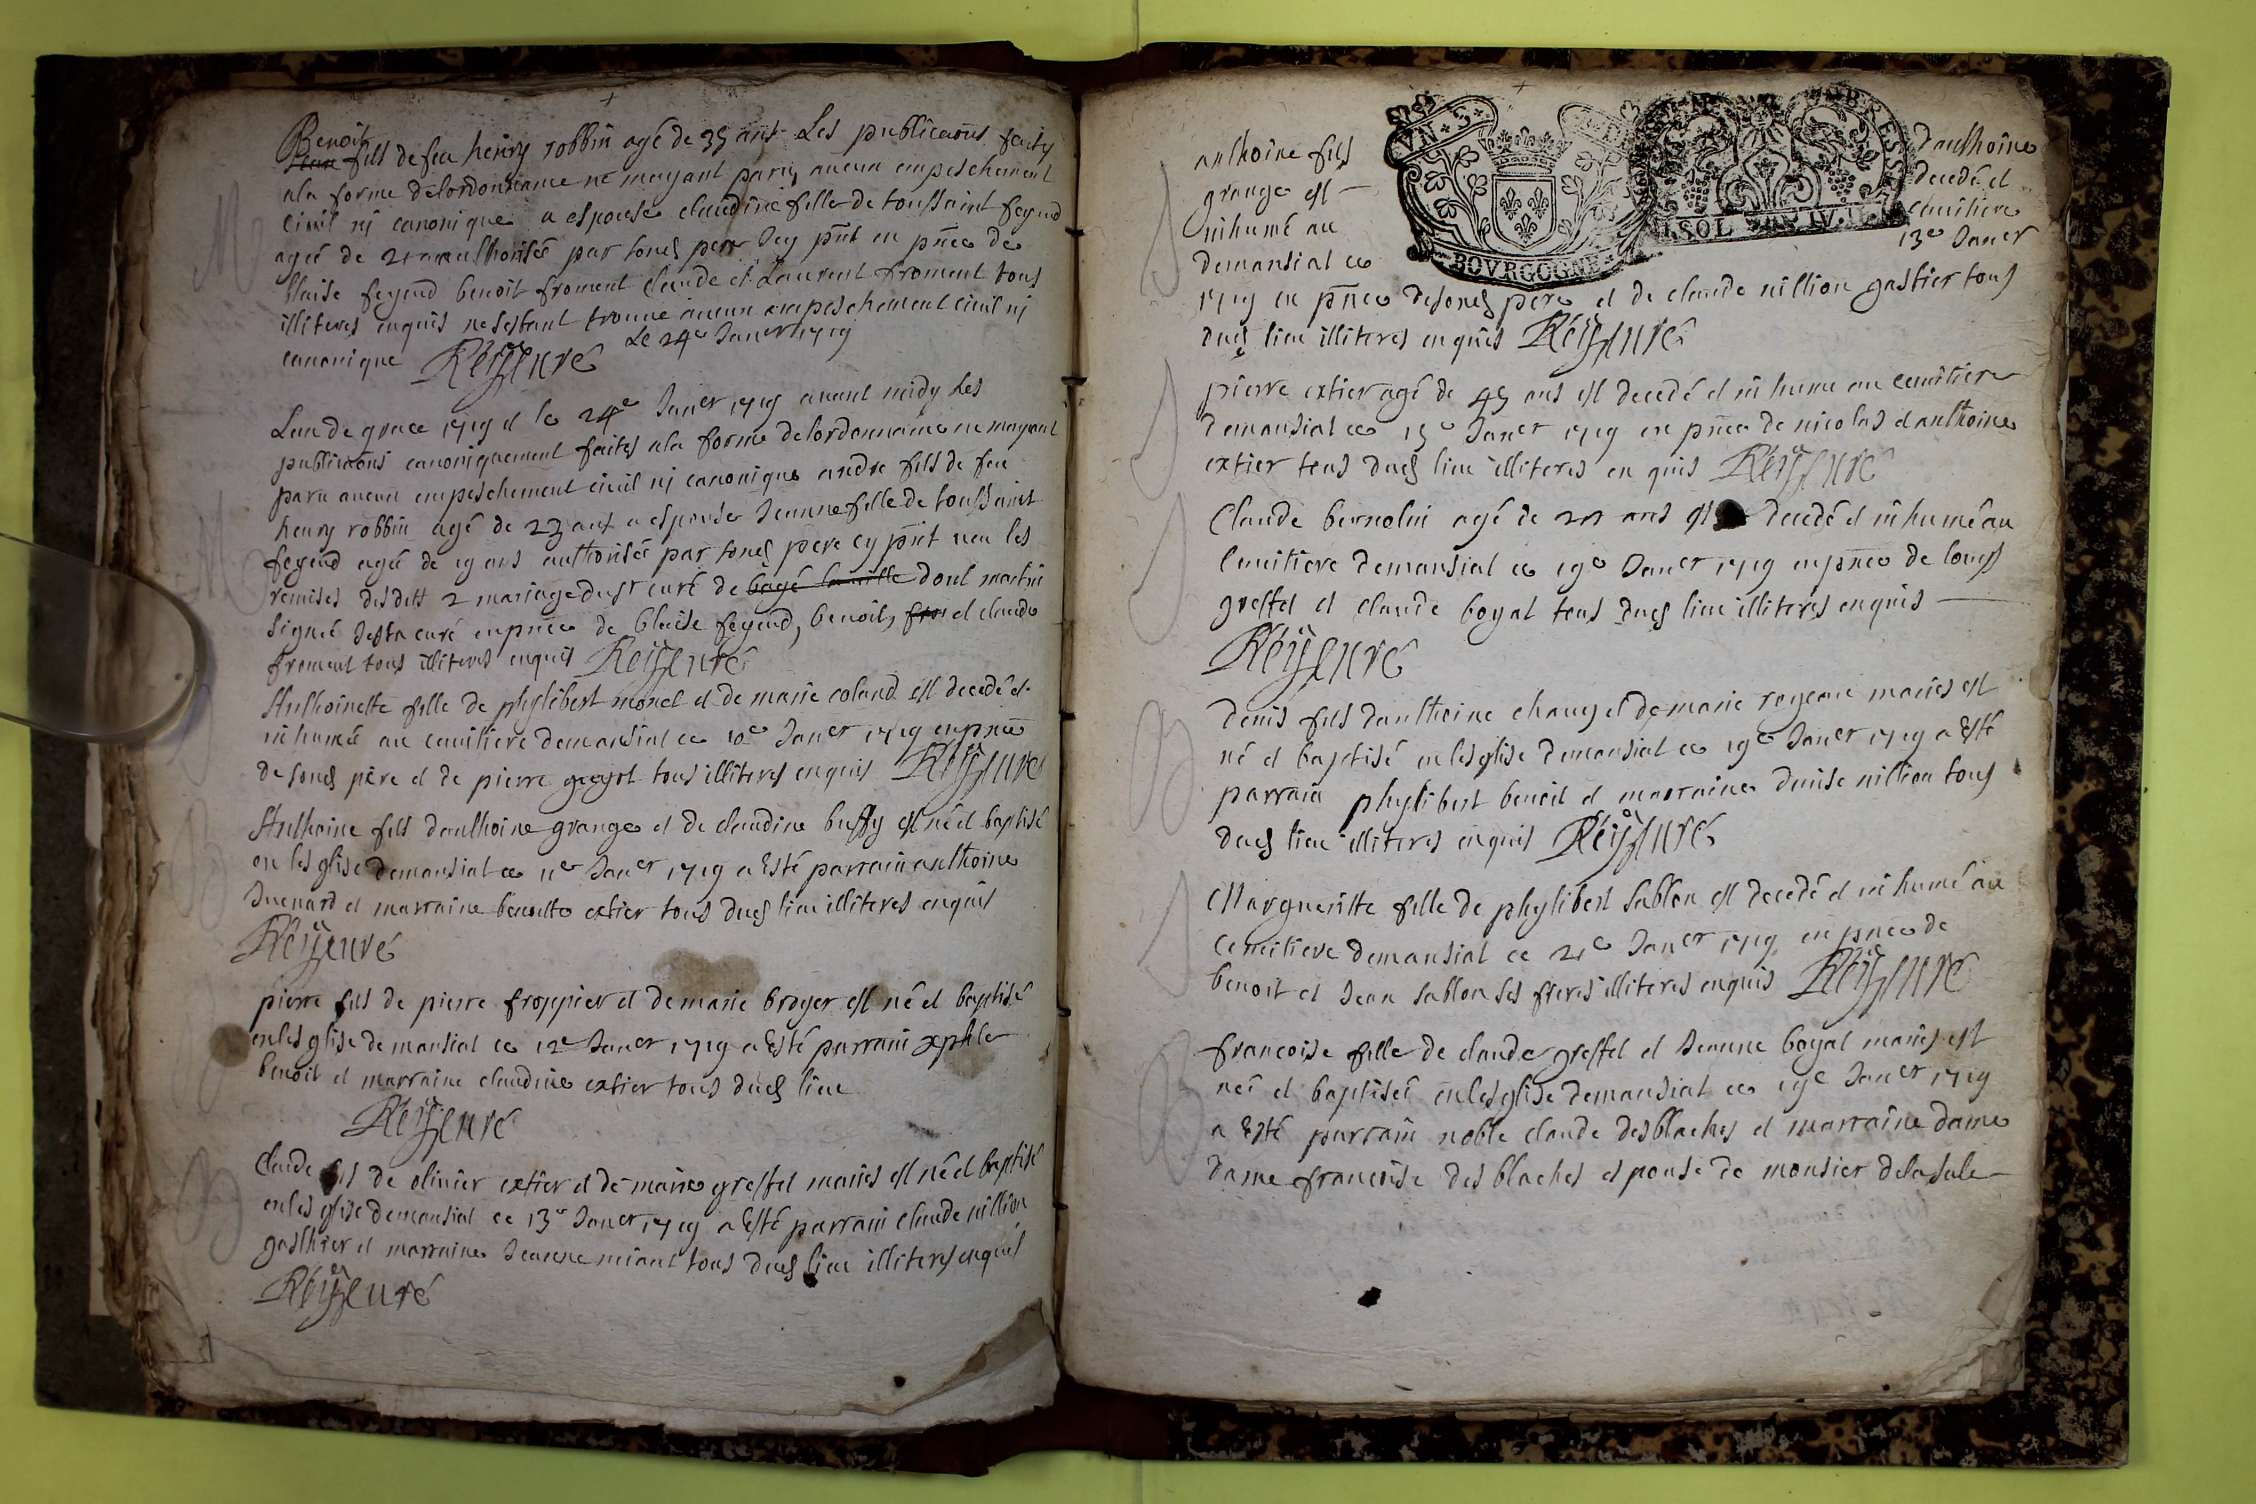 Benoit
fils de feu henry robbin agé de 35 ans Les publicaons faites
a la forme delordonnance ne mayant paru aucun empeschement
Civil ni canonique a espousé claudine fille de toussaint feyend
agée de 21 an authorisée par sond pere Icy pnt en pnce de
blaise feyend benoit froment Claude et Laurent froment tous
illiteres enquis nesestant trouvé aucun empeschement civil ni
canonique Le 24e Janer 1719
Reÿ curé
Lan de grace 1719 et le 24e Janer 1719 avant midy Les
publicaons canoniquement faites ala forme delordonnance ne mayant
paru aucun empeschement civil ni canonique andre fils de feu
henry robbin agé de 23 ans a espousé Jeanne fille de toussaint
feyend agée de 19 ans authorisée par sond père cy pnt veu les
remises desdits 2 mariage du sr curé de bagé la ville dont martin
signé curé en pnce de blaise feyend, benoit, et claude
froment tous illiteres enquis Reÿ curé
Anthoinette fille de phylibert morel et de marie coland est decedé et
inhumée au cemitiere demansiat ce 10e Janer 1719 en pnce
de sond père et de pierre tous illiteres enquis Reÿ curé
Anthoine fils danthoine grange et de claudine buffy est né et baptisé
en lesglise demansiat ce 11e Janer 1719 a esté parrain anthoine
Juenard et marraine benoitte extier tous dud lieu illiteres enquis
Reÿ curé
pierre fils de pierre froppier et de marie broyer est né et baptisé
en lesglise demansiat ce 12e Janer 1719 a esté parrain
benoit et marraine claudine extier tous dud lieu
Reÿ curé
Claude fils de olivier extier et de marie greffet mariés est né et baptisé
en lesglise demansiat ce 13e Janer 1719 a esté parrain claude nillion
gasthier et marraine Jeanne miant tous dud lieu illiteres enquis
Reÿ curé
VN S.
BOVRGOGNE
BRESSE
SOL
anthoine fils danthoine
grange est decedé et
inhumé au cemitiere
demansiat ce 13e Janer
1719 en pnce de sond pere et de claude nillion gastier tous
dud lieu illiteres enquis Reÿ curé
pierre extier agé de 45 ans est decedé et inhumé au cemitiere
demansiat ce 15e Janer 1719 en pnce de nicolas et anthoine
extier tous dud lieu illiteres enquis Reÿ curé
Claude bernolin agé de ans est decedé et inhumé au
Cemitiere demansiat ce 19e Janer 1719 en pnce de louys
greffet et claude boyat tous dud lieu illiteres enquis
Reÿ curé
Denis fils danthoine chanel et de marie mariés est
né et baptisé en lesglise demansiat ce 19e Janer 1719 a esté
parrain phylibert benoit et marraine denise nillion tous
dud lieu illiteres enquis Reÿ curé
Margueritte fille de phylibert sablon est decedé et inhumé au
cemitiere demansiat ce 21e Janer 1719 en pnce de
benoit et Jean sablon ses freres illiteres enquis Reÿ curé
francoise fille de claude greffet et Jeanne boyat mariés est
née et baptisée en lesglise demansiat ce 19e Janer 1719
a esté parrain noble claude desblaches et marraine dame
dame francoise des blaches espouse de monsier delasale